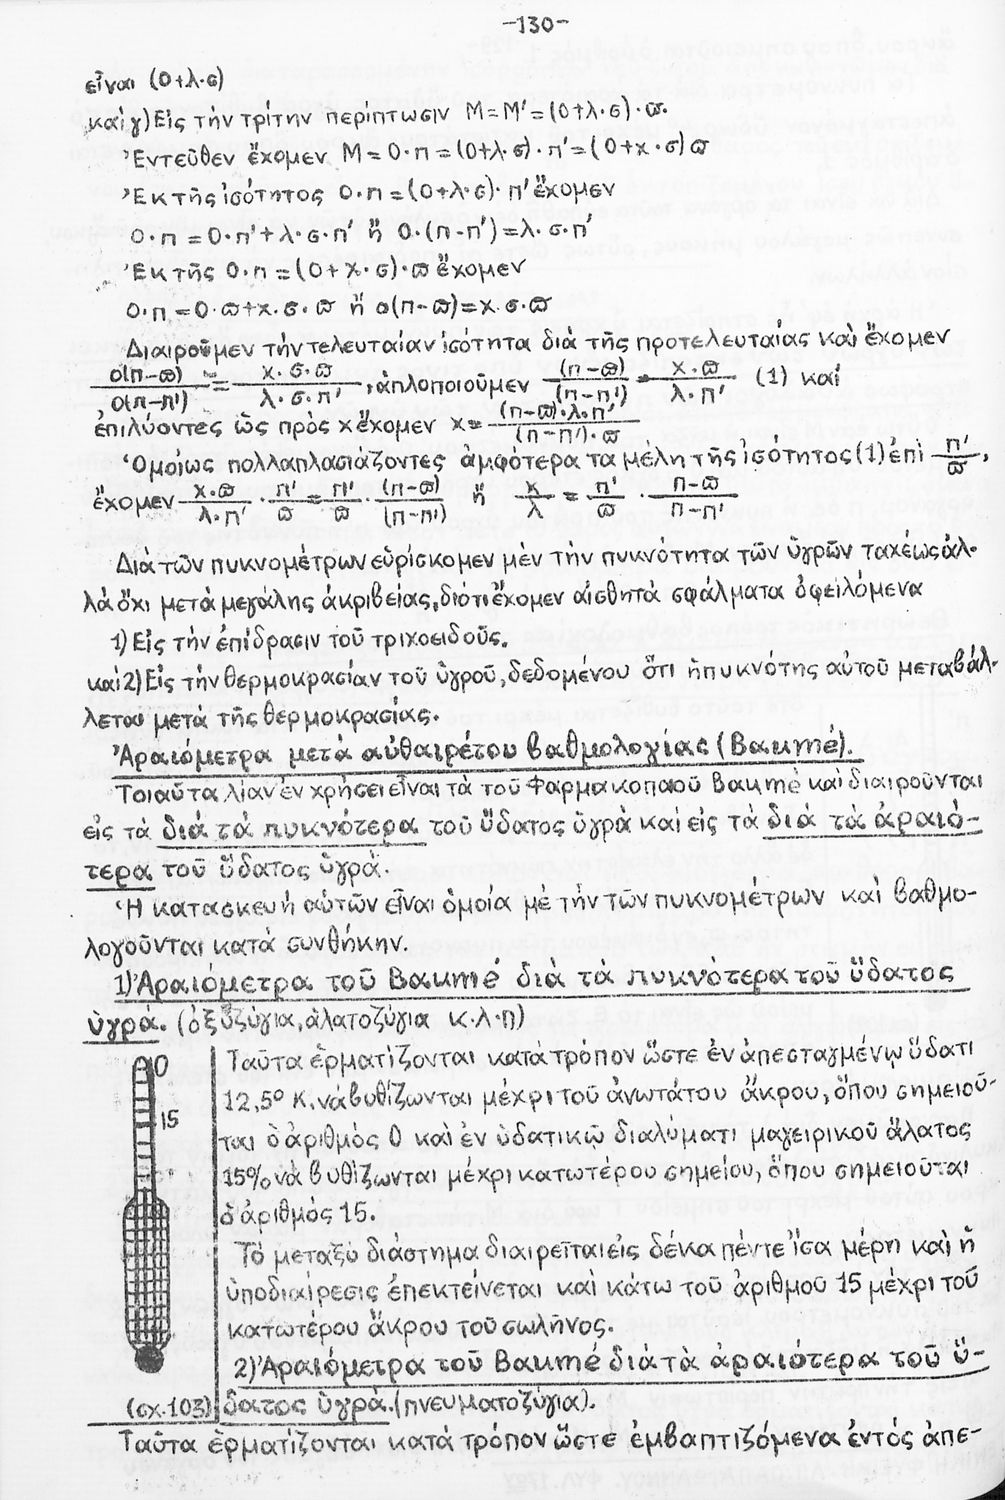 -130-
εἶναι (Ο+λ·σ)
καὶ γ) Εἰς τὴν τρίτην περίπτωσιν Μ=Μ'=(Ο+λ·σ)·ϖ.
Ἐντεῦθεν ἔχομεν Μ=Ο·π=(Ο+λ·σ)·π'=(Ο+χ·σ)ϖ
Ἐκ τῆς ἰσότητος Ο·π=(Ο+λ·σ)·π' ἔχομεν
Ο·π=Ο·π'+λ·σ·π' ἤ Ο·(π-π')=λ·σ·π'
Ἐκ τῆς Ο·π=(Ο+χ·σ)·ϖ ἔχομεν
Ο·π=Ο·ϖ+χ·σ·ϖ ἤ ο(π-ϖ)=χ·σ·ϖ
Διαιροῦμεν τὴν τελευταίαν ἰσότητα διὰ τῆς προτελευταίας καὶ ἔχομεν
ο(π-ϖ)/ο(π-π') = χ·σ·ϖ/λ·σ·π', ἁπλοποιοῦμεν (π-ϖ)/(π-π') = χ·ϖ/λ·π' (1) καὶ
ἐπιλύοντες ὡς πρὸς χ ἔχομεν χ= (π-ϖ)·λ·π'/(π-π')·ϖ
Ὁμοίως πολλαπλασιάζοντες ἀμφότερα τα μέλη τῆς ἰσότητος (1) ἐπὶ π'/ϖ,
ἔχομεν χ·ϖ/λ·π' · π'/ϖ = π'/ϖ · (π-ϖ)/(π-π') ἤ χ/λ = π'/ϖ · π-ϖ/π-π'
Διὰ τῶν πυκνομέτρων εὑρίσκομεν μὲν τὴν πυκνότητα τῶν ὑγρῶν ταχέως ἀλ-
λὰ ὄχι μετὰ μεγάλης ἀκριβείας, διότι ἔχομεν αἰσθητὰ σφάλματα ὀφειλόμενα
1) Εἰς τὴν ἐπίδρασιν τοῦ τριχοειδοῦς.
καὶ 2) Εἰς τὴν θερμοκρασίαν τοῦ ὑγροῦ, δεδομένου ὅτι ἡ πυκνότης αὐτοῦ μεταβάλ-
λεται μετὰ τῆς θερμοκρασίας.
Ἀραιόμετρα μετὰ αὐθαιρέτου βαθμολογίας (Baumé).
Τοιαῦτα λίαν ἐν χρήσει εἶναι τὰ τοῦ Φαρμακοποιοῦ Baumè καὶ διαιροῦνται
εἰς τὰ διὰ τὰ πυκνότερα τοῦ ὕδατος ὑγρὰ καὶ εἰς τὰ διὰ τὰ ἀραιό-
τερα τοῦ ὕδατος ὑγρά.
Ἡ κατασκευή αὐτῶν εἶναι ὁμοία μὲ τὴν τῶν πυκνομέτρων καὶ βαθμο-
λογοῦνται κατὰ συνθήκην.
1) Ἀραιόμετρα τοῦ Baumé διὰ τὰ πυκνότερα τοῦ ὕδατος
ὑγρά. (ὀξυζύγια, ἁλατοζύγια κ·λ·π)
0
15
(σχ.103)
Ταῦτα ἑρματίζονται κατὰ τρόπον ὥστε ἐν ἀπεσταγμένῳ ὕδατι
12,5° Κ. νὰ βυθίζωνται μέχρι τοῦ ἀνωτάτου ἄκρου, ὅπου σημειοῦ-
ται ὁ ἀριθμὸς 0 καὶ ἐν ὑδατικῷ διαλύματι μαγειρικοῦ ἅλατος
15% νὰ βυθίζωνται μέχρι κατωτέρου σημείου, ὅπου σημειοῦται
ὁ ἀριθμὸς 15.
Τὸ μεταξὺ διάστημα διαιρεῖται εἰς δέκα πέντε ἴσα μέρη καὶ ἡ
ὑποδιαίρεσις ἐπεκτείνεται καὶ κάτω τοῦ ἀριθμοῦ 15 μέχρι τοῦ
κατωτέρου ἄκρου τοῦ σωλῆνος.
2) Ἀραιόμετρα τοῦ Baumé διὰ τὰ ἀραιότερα τοῦ ὕ-
δατος ὑγρά. (πνευματοζύγια).
Ταῦτα ἑρματίζονται κατὰ τρόπον ὥστε ἐμβαπτιζόμενα ἐντὸς ἀπε-